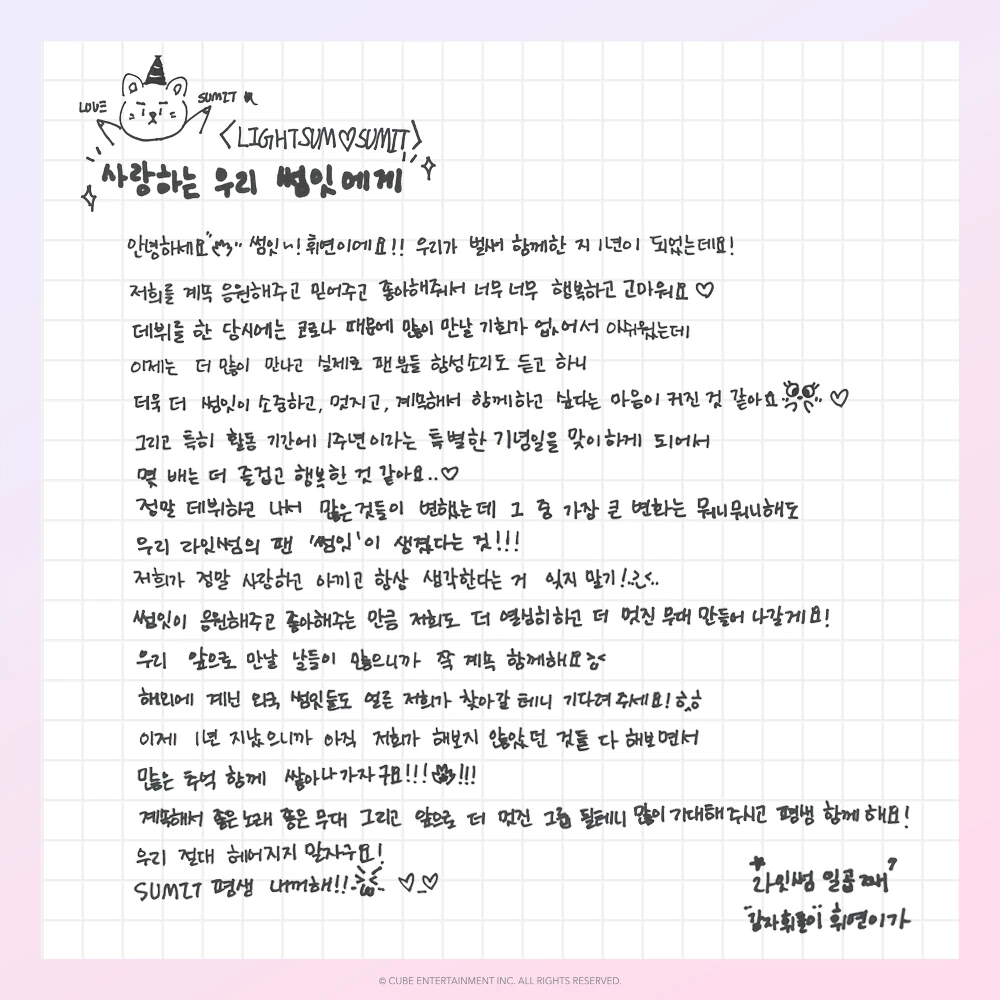 LOVE SUMIT
<LIGHTSUM♡SUMIT>
사랑하는 우리 썸잇에게
안녕하세요 썸잇~! 휘연이에요!! 우리가 벌써 함께한 지 1년이 되었는데요!
저희를 계속 응원해주고 믿어주고 좋아해줘서 너무 너무 행복하고 고마워요 ♡
데뷔를 한 당시에는 코로나 때문에 많이 만날 기회가 없어서 아쉬웠는데
이제는 더 많이 만나고 실제로 팬분들 함성소리도 듣고 하니
더욱 더 썸잇이 소중하고, 멋지고, 계속해서 함께하고 싶다는 마음이 커진 것 같아요 ♡
그리고 특히 활동 기간에 1주년이라는 특별한 기념일을 맞이하게 되어서
몇 배는 더 즐겁고 행복한 것 같아요..♡
정말 데뷔하고 나서 많은것들이 변했는데 그 중 가장 큰 변화는 뭐니뭐니해도
우리 라잇썸의 팬 '썸잇'이 생겼다는 것!!!
저희가 정말 사랑하고 아끼고 항상 생각한다는 거 잊지 말기!
썸잇이 응원해주고 좋아해주는 만큼 저희도 더 열심히하고 더 멋진 무대 만들어 나갈게요!
우리 앞으로 만날 날들이 많으니까 쭉 계속 함께해요
해외에 계신 외국 썸잇들도 얼른 저희가 찾아갈 테니 기다려주세요! ㅎㅎ
이제 1년 지났으니까 아직 저희가 해보지 않았던 것들 다 해보면서
많은 추억 함께 쌓아나가자구요!!! !!!
계속해서 좋은 노래 좋은 무대 그리고 앞으로 더 멋진 그룹 될테니 많이 기대해주시고 평생 함께해요!
우리 절대 헤어지지 말자구요!
SUMIT 평생 내꺼해!! ♡_♡
라잇썸 일곱째
감자휘룽이 휘연이가
© CUBE ENTERTAINMENT INC. ALL RIGHTS RESERVED.